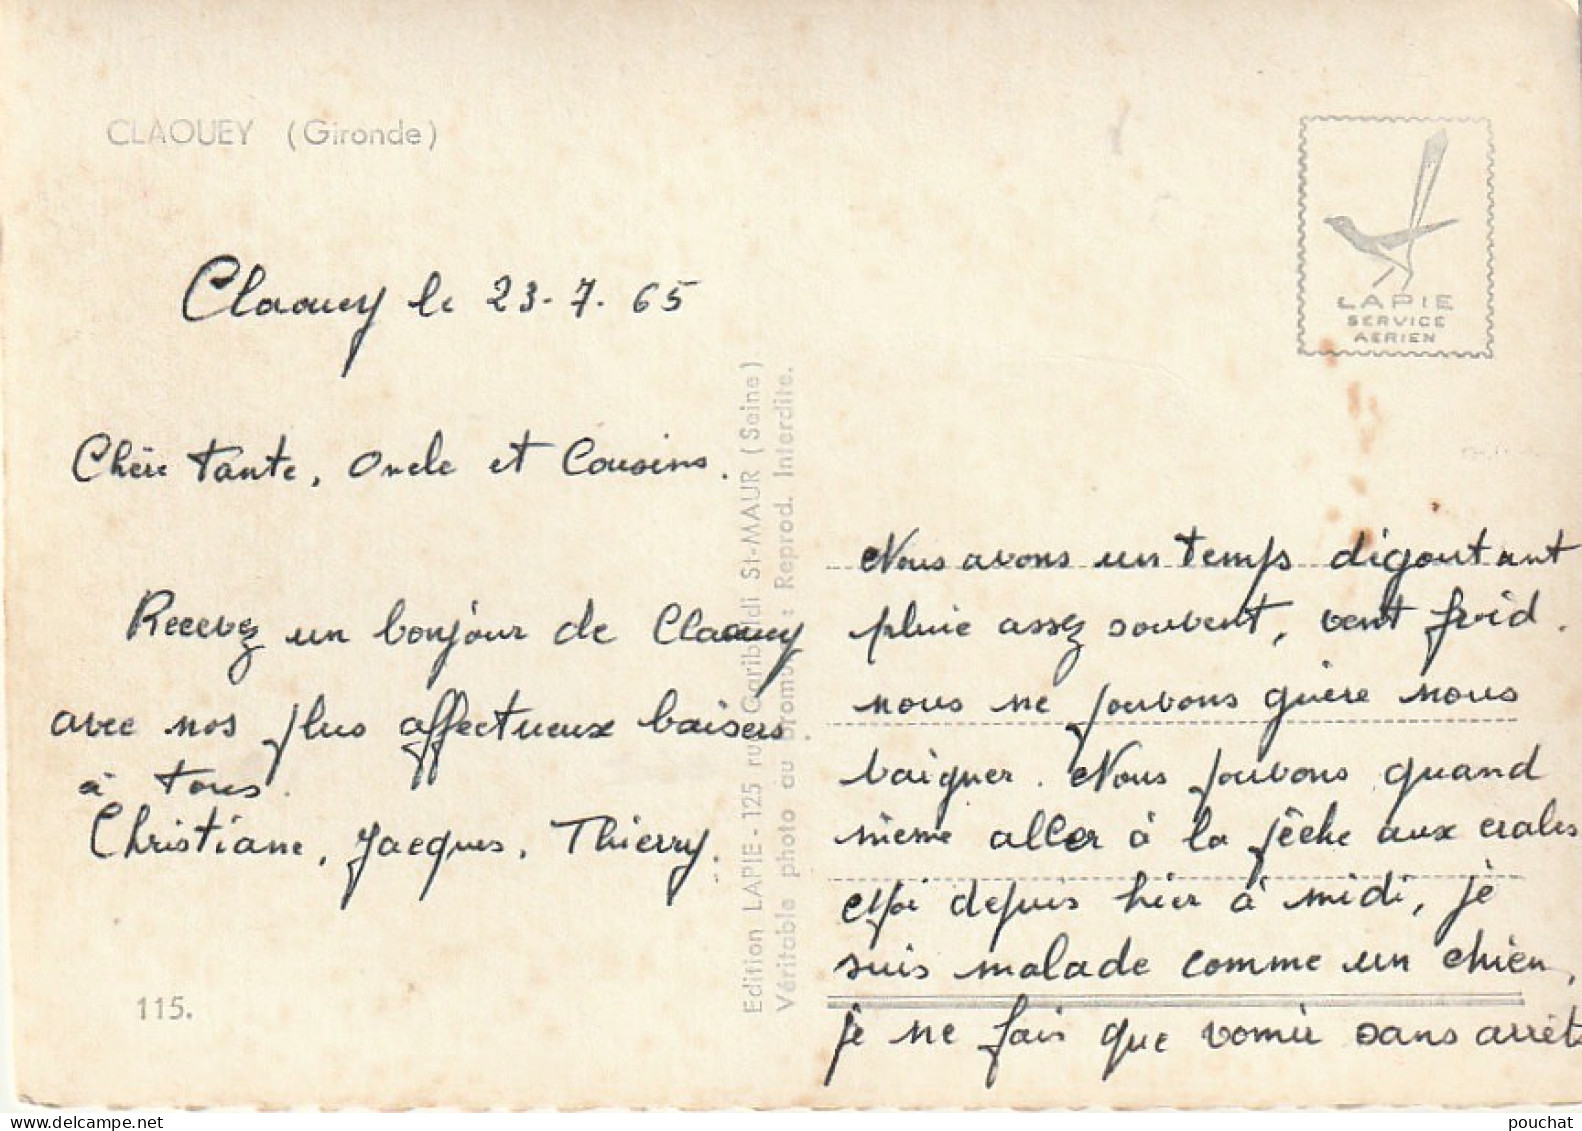 CLAOUEY (Gironde)
Claouey le 23-7.65
Chère tante, Oncle et Cousins.
Recevez un bonjour de Claouey
avec nos plus affectueux baisers
à tous.
Christiane, Jacques, Thierry.
115.
Edition LAPIE - 125 rue Garibaldi St-MAUR (Seine)
Véritable photo au bromure : Reprod. Interdite.
LAPIE
SERVICE
AERIEN
Nous avons un temps digoutant
pluie assez souvent, vent froid.
nous ne pouvons guère nous
baigner. Nous pouvons quand
même aller à la pêche aux crabes
Moi depuis hier à midi, je
suis malade comme un chien,
je ne fais que vomir sans arrêt
pouchat